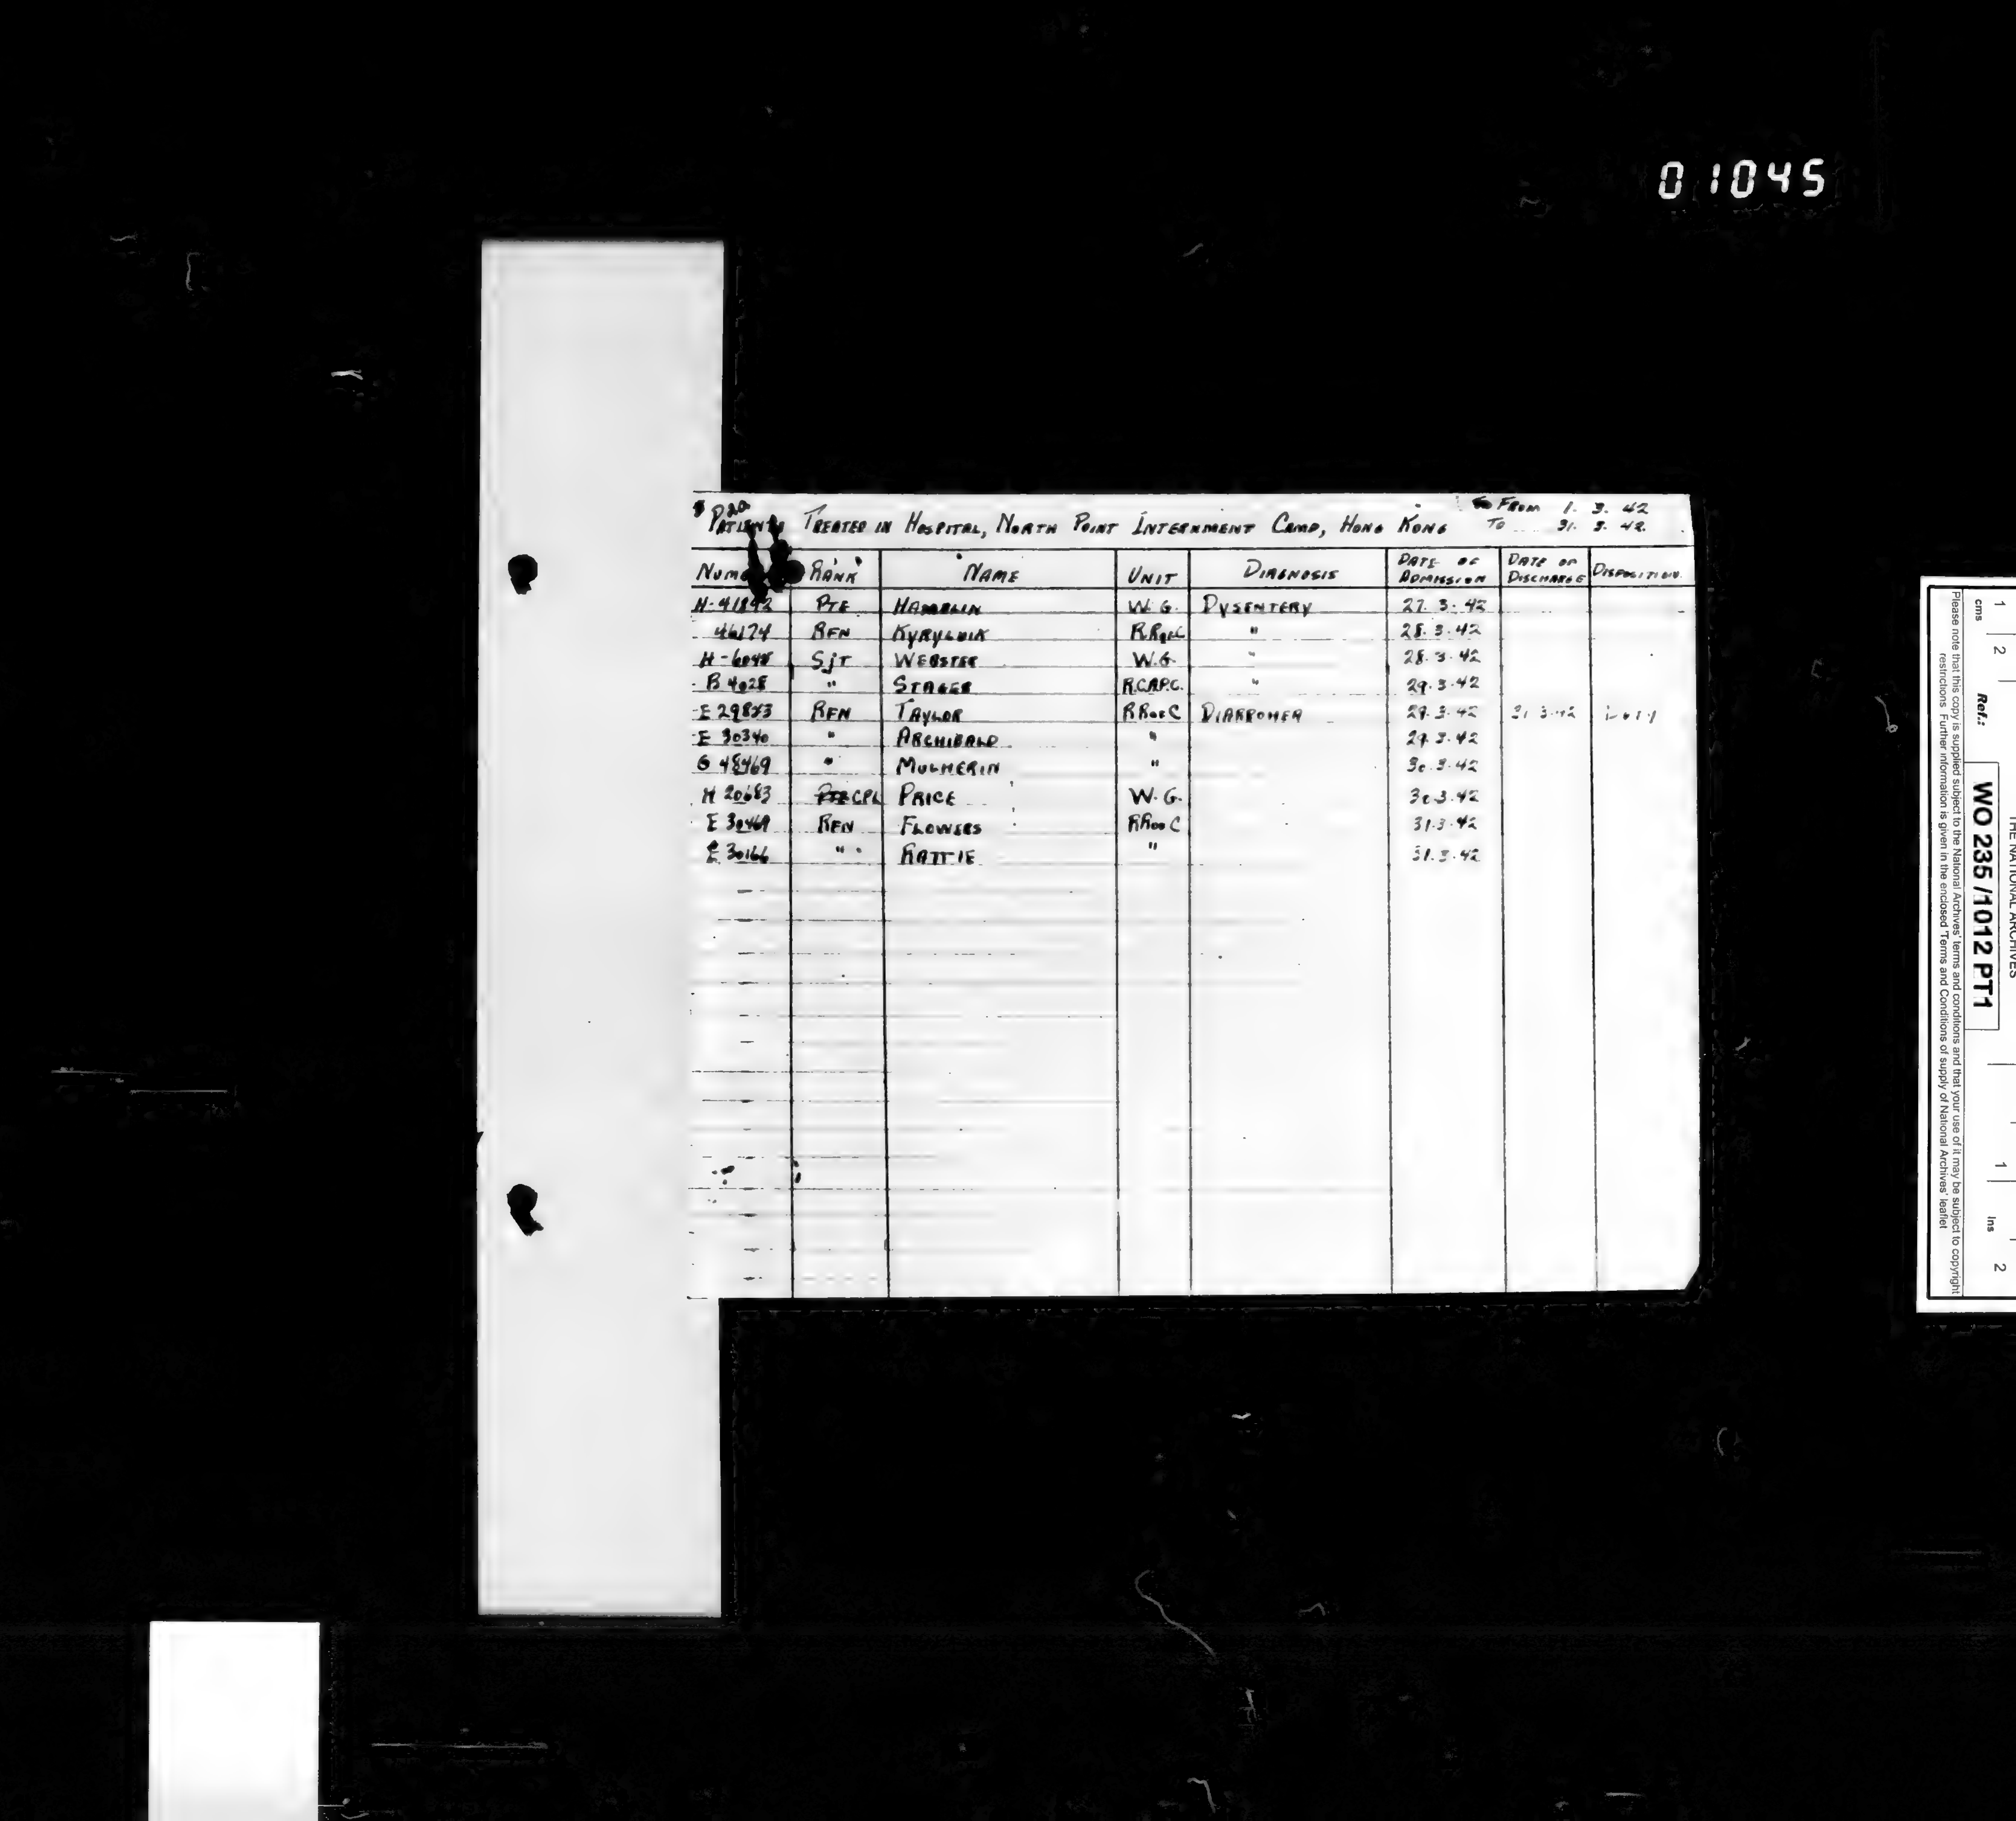 01045
P20
Patients Treated in Hospital, North Point Internment Camp, Hong Kong
From 1. 3. 42
To 31. 3. 42.
Rank Name Unit Diagnosis Date of Admission Date of Discharge Disposition
Pte Hamelin W.G. Dysentery 27.3.42
46174 Rfn R.R of C " 28.3.42
Sjt Webster W.G. " 28.3.42
B 4028 " Stager R.C.A.P.C. " 29.3.42
Rfn Taylor RR of C Diarrohea 29.3.42 31.3.42 Duty
E 30340 " Archibald " 29.3.42
G 48469 " Mulherin " 30.3.42
H 20683 Cpl Price W.G. 30.3.42
E 30469 Rfn Flowers RR of C 31.3.42
E 30166 " Rattie " 31.3.42
THE NATIONAL ARCHIVES
cms 1 2 1 Ins 2
Ref.: WO 235/1012 PT1
Please note that this copy is supplied subject to the National Archives' terms and conditions and that your use of it may be subject to copyright
restrictions. Further information is given in the enclosed 'Terms and Conditions of supply of National Archives' leaflet